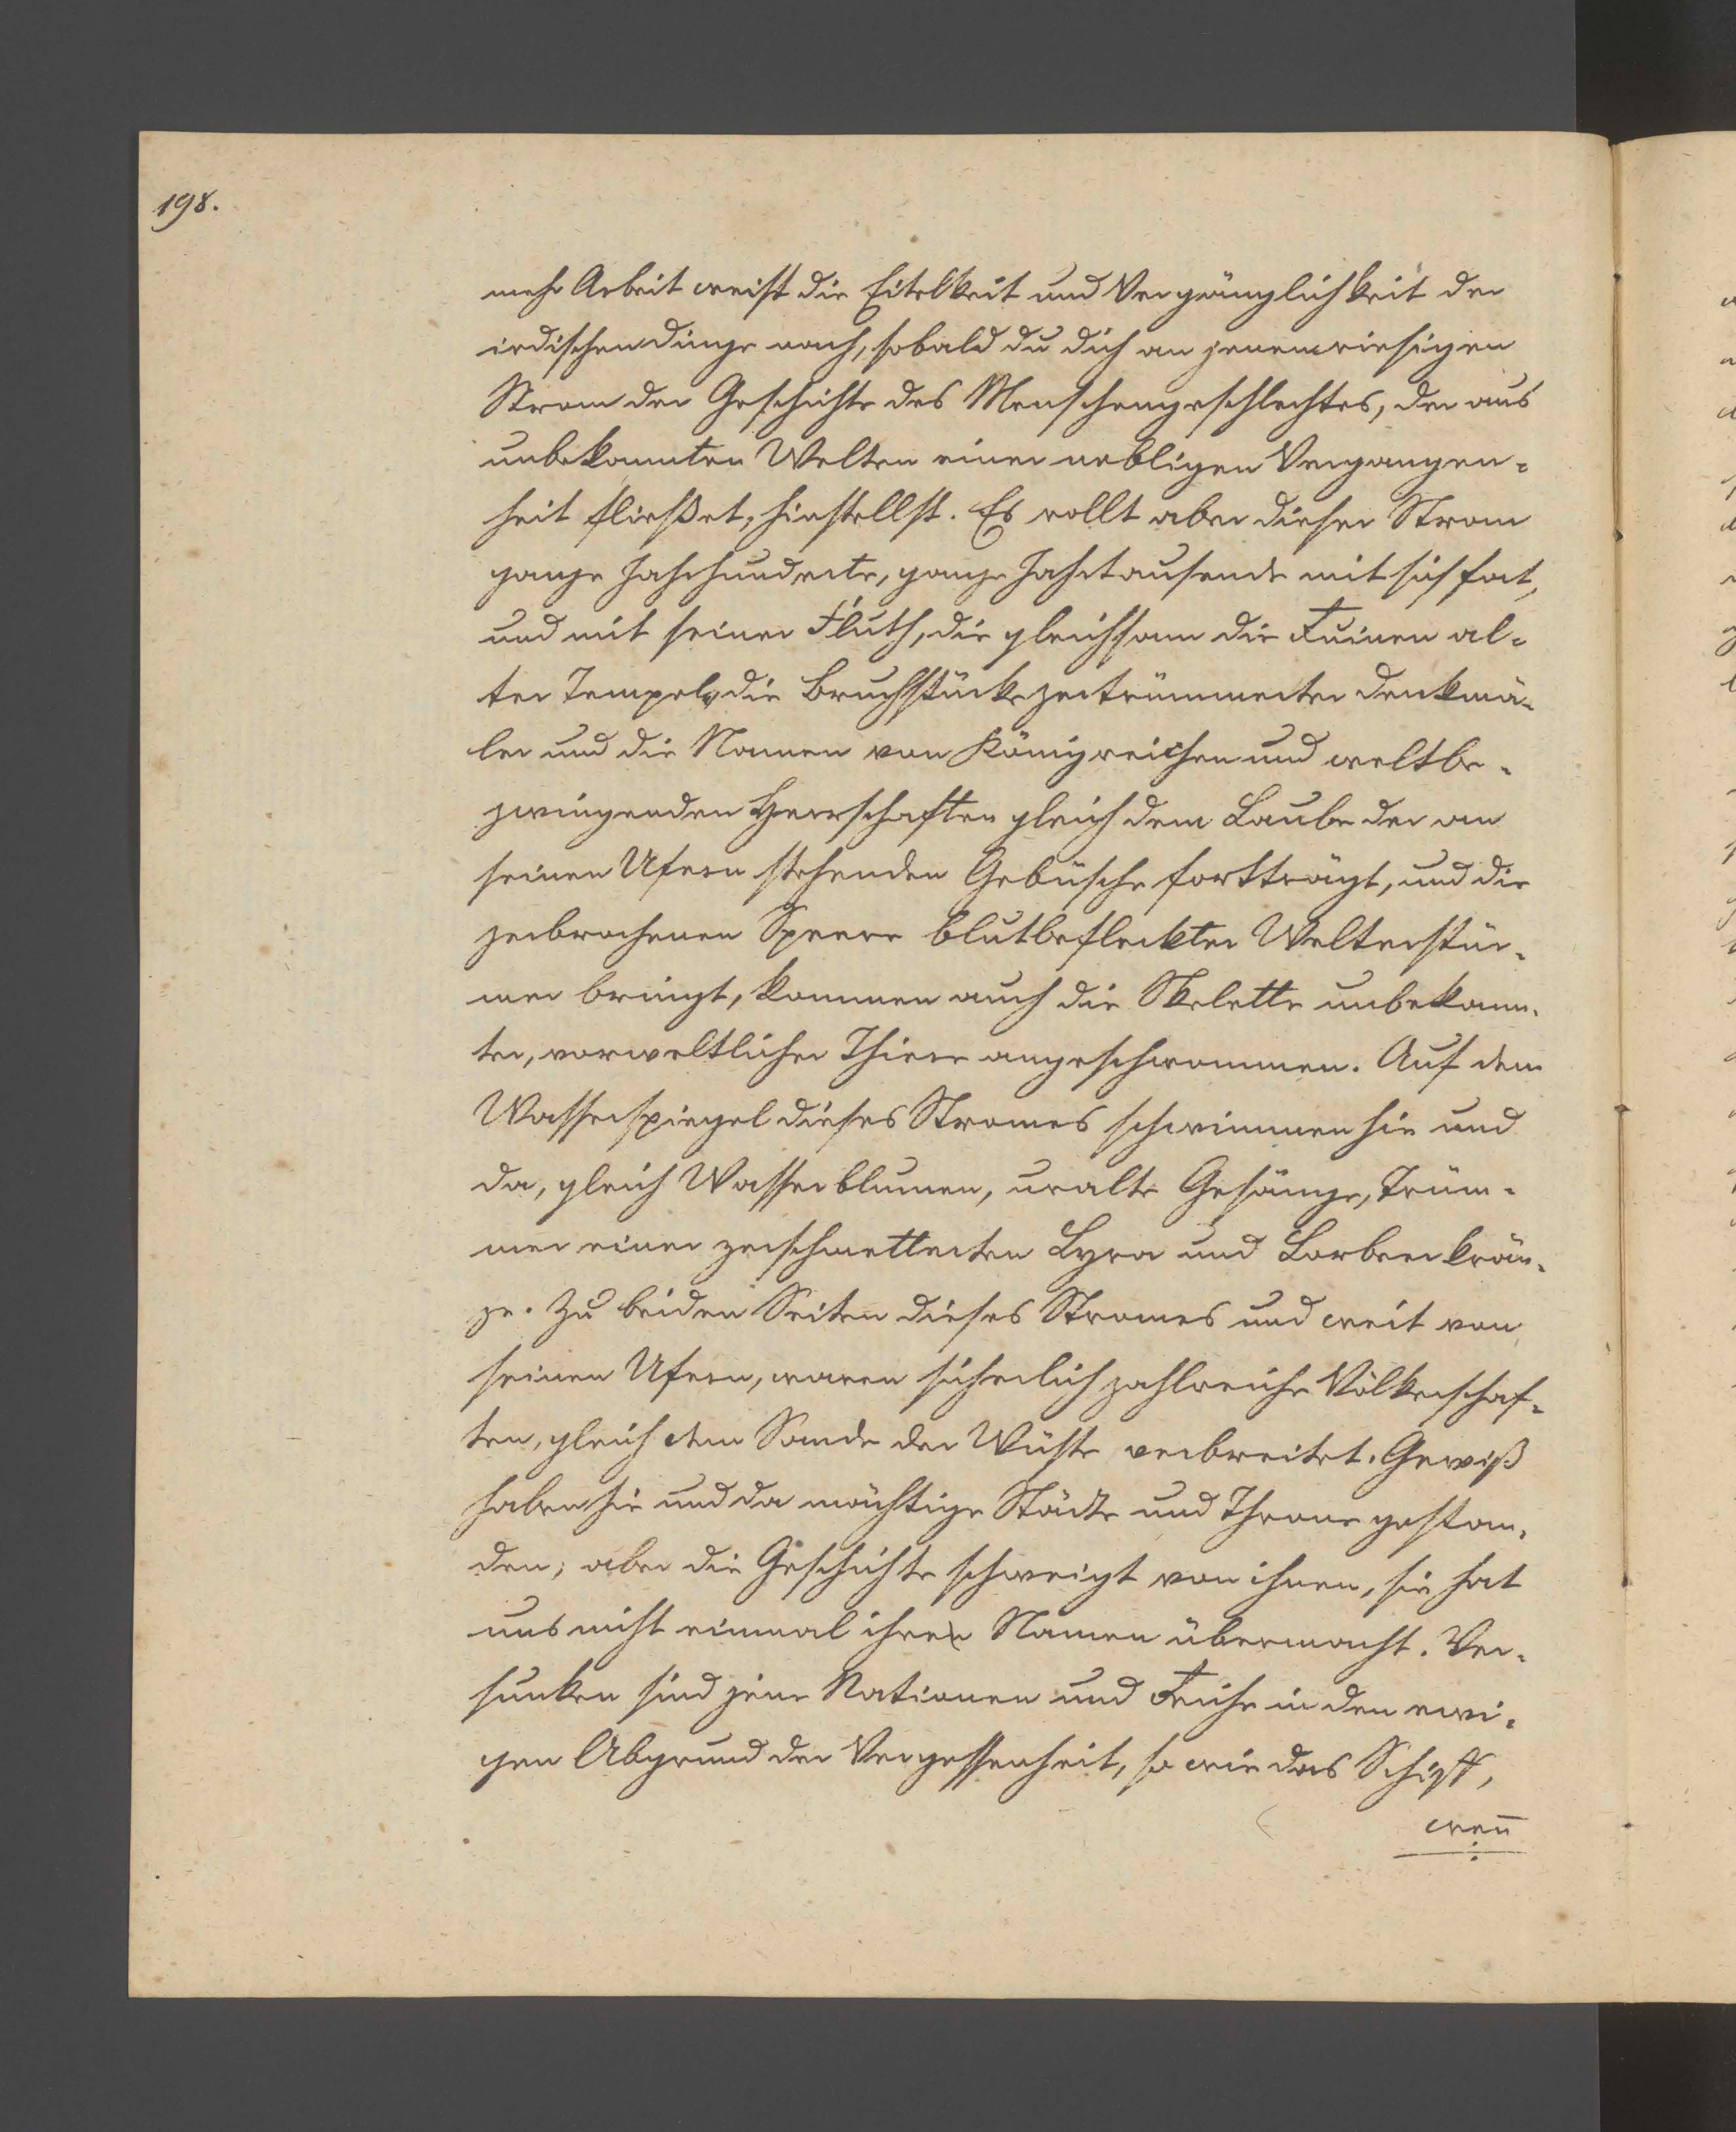 198.
mehr Arbeit weist die Eitelkeit und Vergänglichkeit der
irdischen Dinge nach, sobald du dich an jenem riesigen
Strom der Geschichte des Menschengeschlechtes, der aus
unbekannten Welten einer nebligen Vergangen-
heit fließet, hinstellst. Es rollt aber dieser Strom
ganze Jahrhunderte, ganze Jahrtausende mit sich fort,
und mit seiner Fluth, die gleichsam die Ruinen al-
ter Tempel, die Bruchstücke zertrümmerter Denkmä-
ler und die Namen von Königreichen und weltbe-
zwingenden Herrschaften gleich dem Laube der an
seinen Ufern stehenden Gebüsche fortträgt, und die
zerbrochenen Speere blutbefleckter Welterstür-
mer bringt, kommen auch die Skelette unbekann-
ter, vorweltlicher Thiere angeschwommen. Auf dem
Wasserspiegel dieses Stromes schwimmen hie und
da, gleich Wasserblumen, uralte Gesänge, Trüm-
mer einer zerschmetterten Lyra und Lorbeerkrän-
ze. Zu beiden Seiten dieses Stromes und weit von
seinen Ufern, waren sicherlich zahlreiche Völkerschaf-
ten, gleich dem Sande der Wüste verbreitet. Gewiß
haben hie und da mächtige Städte und Throne gestan-
den; aber die Geschichte schweigt von ihnen, sie hat
uns nicht einmal ihren Namen übermacht. Ver-
sunken sind jene Nationen und Reiche in den ewi-
gen Abgrund der Vergessenheit, so wie das Schiff,
wen̅